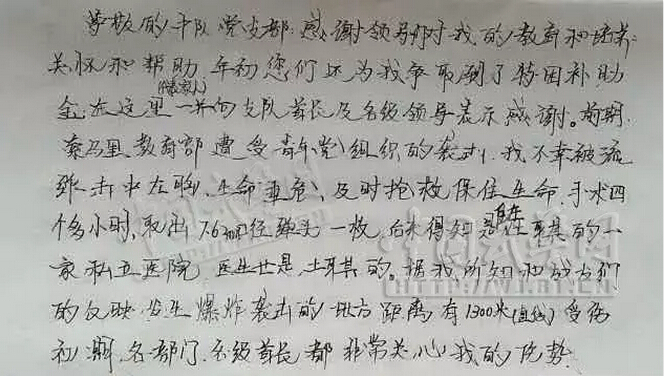 尊敬的中队党支部：感谢领导们对我的教育和培养
关怀和帮助，年初您们还为我争取到了特困补助
金，在这里(代表家人)一并向支队首长及各级领导表示感谢。前期
索马里教育部遭受青年党组织的袭击，我不幸被流
弹击中左胸，生命垂危，及时抢救保住生命，手术四
个多小时，取出7.62mm口径弹头一枚，后来得知是在土耳其的一
家私立医院，医生也是土耳其的，据我所知和战友们
的反映，发生爆炸袭击的地方距离有1300米(直线)受伤
初期，各部门，各级首长都非常关心我的伤势
中国武警网